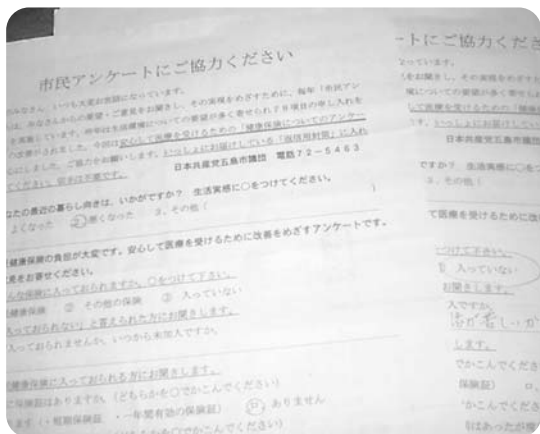 市民アンケートにご協力ください
みなさん、いつも大変お世話になっています。
は、みなさんからの要望・ご意見をお聞きし、その実現をめざすために、毎年「市民アン
を実施しています。昨年は生活環境についての要望が多く寄せられ78項目の申し入れを
の改善がされました。今回は安心して医療を受けるための「健康保険についてのアンケ
心にしました。ご協力をお願いします。いっしょにお届けしている「返信用封筒」に入れ
てください。切手は不要です。
日本共産党五島市議団 電話72-5463
なたの最近の暮らし向きは、いかがですか? 生活実感に○をつけてください。
よくなった ② 悪くなった 3、その他( )
健康保険の負担が大変です。安心して医療を受けるために改善をめざすアンケートです。
見をお寄せください。
んな保険に入っておられますか。○をつけて下さい。
健康保険 ② その他の保険 ③ 入っていない
入っておられない」と答えられた方にお聞きします。
入っておられませんか、いつから未加入ですか。
健康保険に入っておられる方にお聞きします。
に保険証はありますか。(どちらかを○でかこんでください)
ます(・短期保険証 ・一年間有効の保険証) ロ ありません
ートにご協力くださ
なっています。
日本共産党五島市
ですか? 生活実感に○を
3、その他(
て医療を受けるために改
つけて下さい。
入っていない
お聞きします。
入ですか。
します。
でかこんでくださ
保険証) ロ、
でかこんでくださ